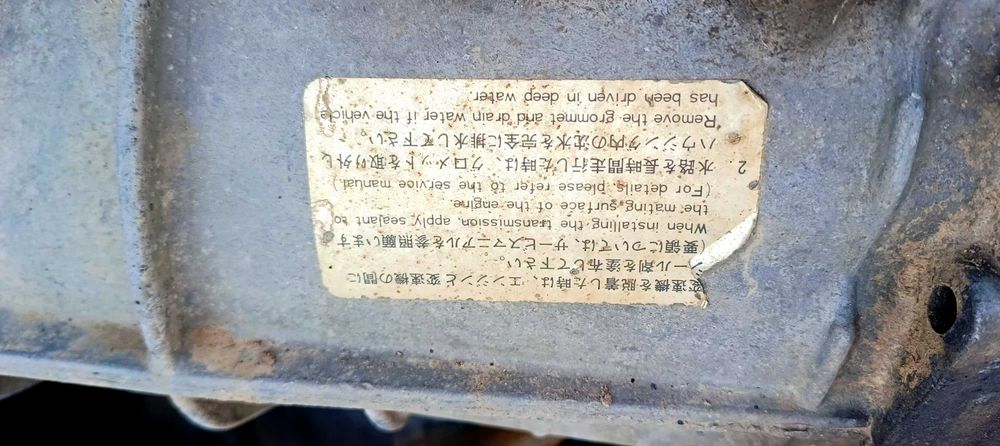 変速機を脱着した時は、エンジンと変速機の間に
シール剤を塗布して下さい。
(要領については、サービスマニアルを参照願います
When installing the transmission, apply sealant to
the mating surface of the engine.
(For details, please refer to the service manual.)
2. 水路を長時間走行した時は、グロメットを取り外し
ハウジング内の泣水を完全に排水して下さい。
Remove the grommet and drain water if the vehicle
has been driven in deep water.